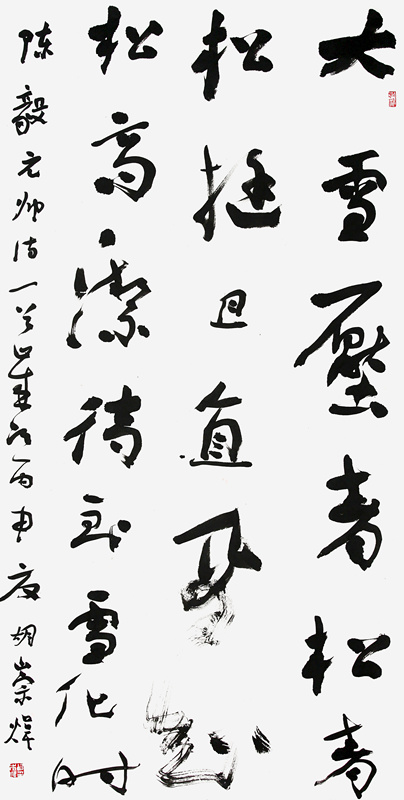 大雪壓青松青
松挺且直要知
松高潔待到雪化时
陈毅元帅诗一首歲次丙申夏胡崇煒